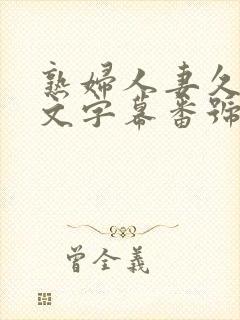 熟婦人妻久
文字幕番號
曾全義